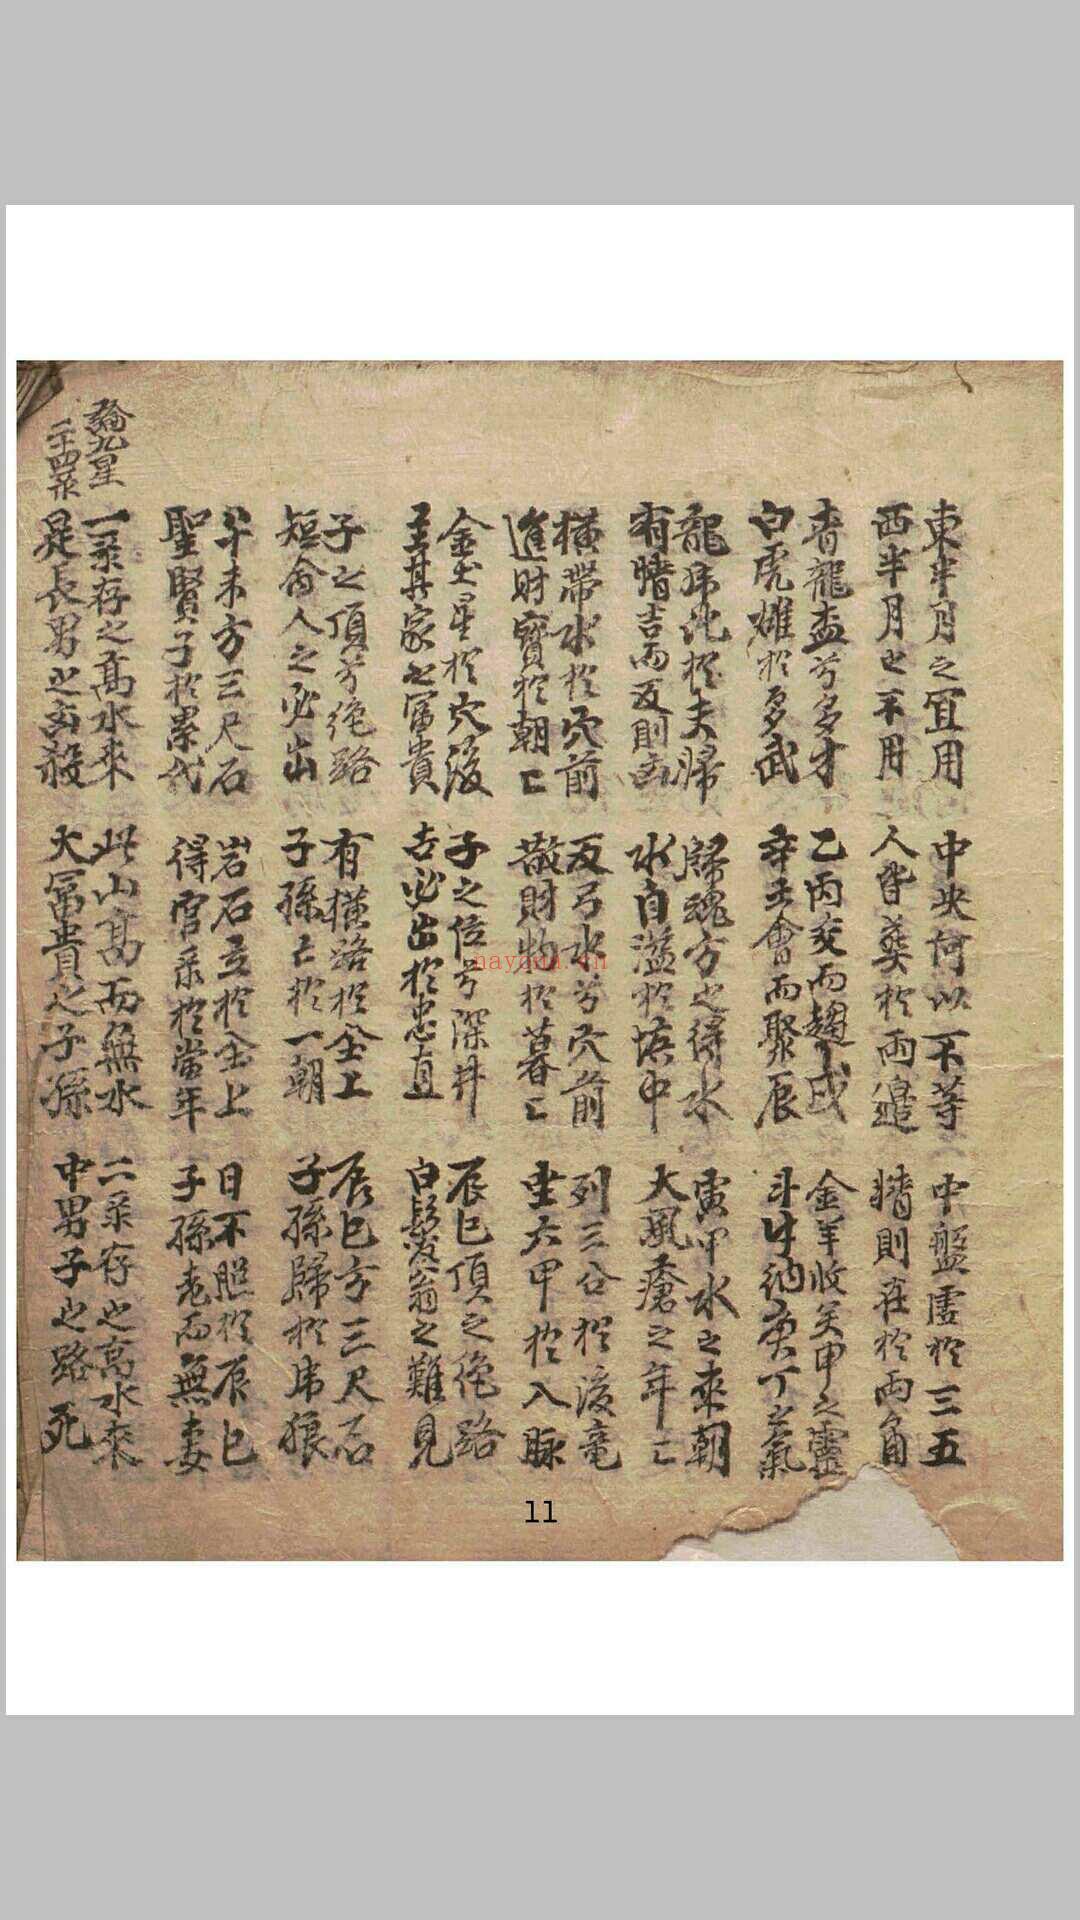 東半月之宜用 中央何以不等 中盤虛於三五
西半月之不用 人皆葬於兩邊 精則在於兩角
青龍盃兮多才 乙丙交而趨戌 金羊收癸甲之靈
白虎雄於多武 辛壬會而聚辰 斗牛納庚丁之氣
龍虎化於夫歸 歸魂方之得水 寅甲水之來朝
有情吉而反則凶 水自溢於墳中 大風瘡之年亡
橫帶水於穴前 反弓水兮穴前 列三公於後竜
進財寶於朝亡 散財物於暮亡 坐六甲於入脉
金土星於穴後 子之位兮深井 辰巳頂之絶路
主其家之富貴 古必出於忠直 白髮翁之難見
子之頂兮絶路 有橫路於全上 辰巳方三尺石
短命人之必出 子孫亡於一朝 子孫歸於虎狼
斗未方三尺石 岩石立於全上 日不照於辰巳
聖賢子於累代 得官禄於當年 子孫老而無妻
論九星
二十四
一存之高水來 此山高而無水 二存之高水來
是長男之殺 大富貴之子孫 中男子之路死
nayona.cn
11